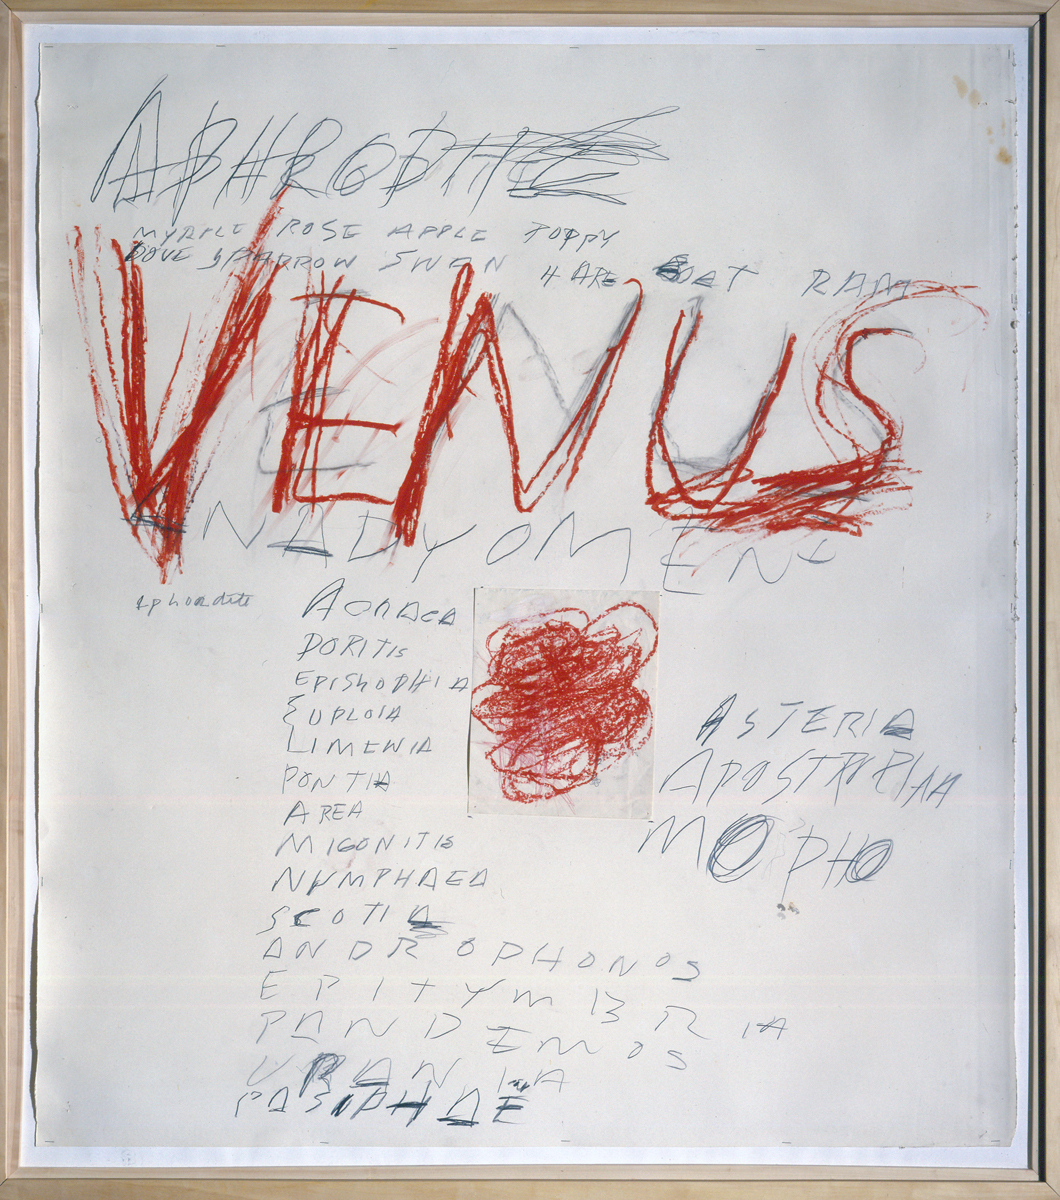 APHRODITE
MYRTLE ROSE APPLE POPPY
DOVE SPARROW SWAN
HARE GOAT RAM
VENUS
ANADYOMENE
Aphrodite
AORAEA
DORITIS
EPISKOPHIA
EUPLOIA
LIMENIA
PONTIA
AREA
MIGONITIS
NUMPHAEA
SCOTIA
ANDROPHONOS
EPITYMBRIA
PANDEMOS
URANIA
PASIPHAE
ASTERIA
APOSTROPHIA
MORPHO